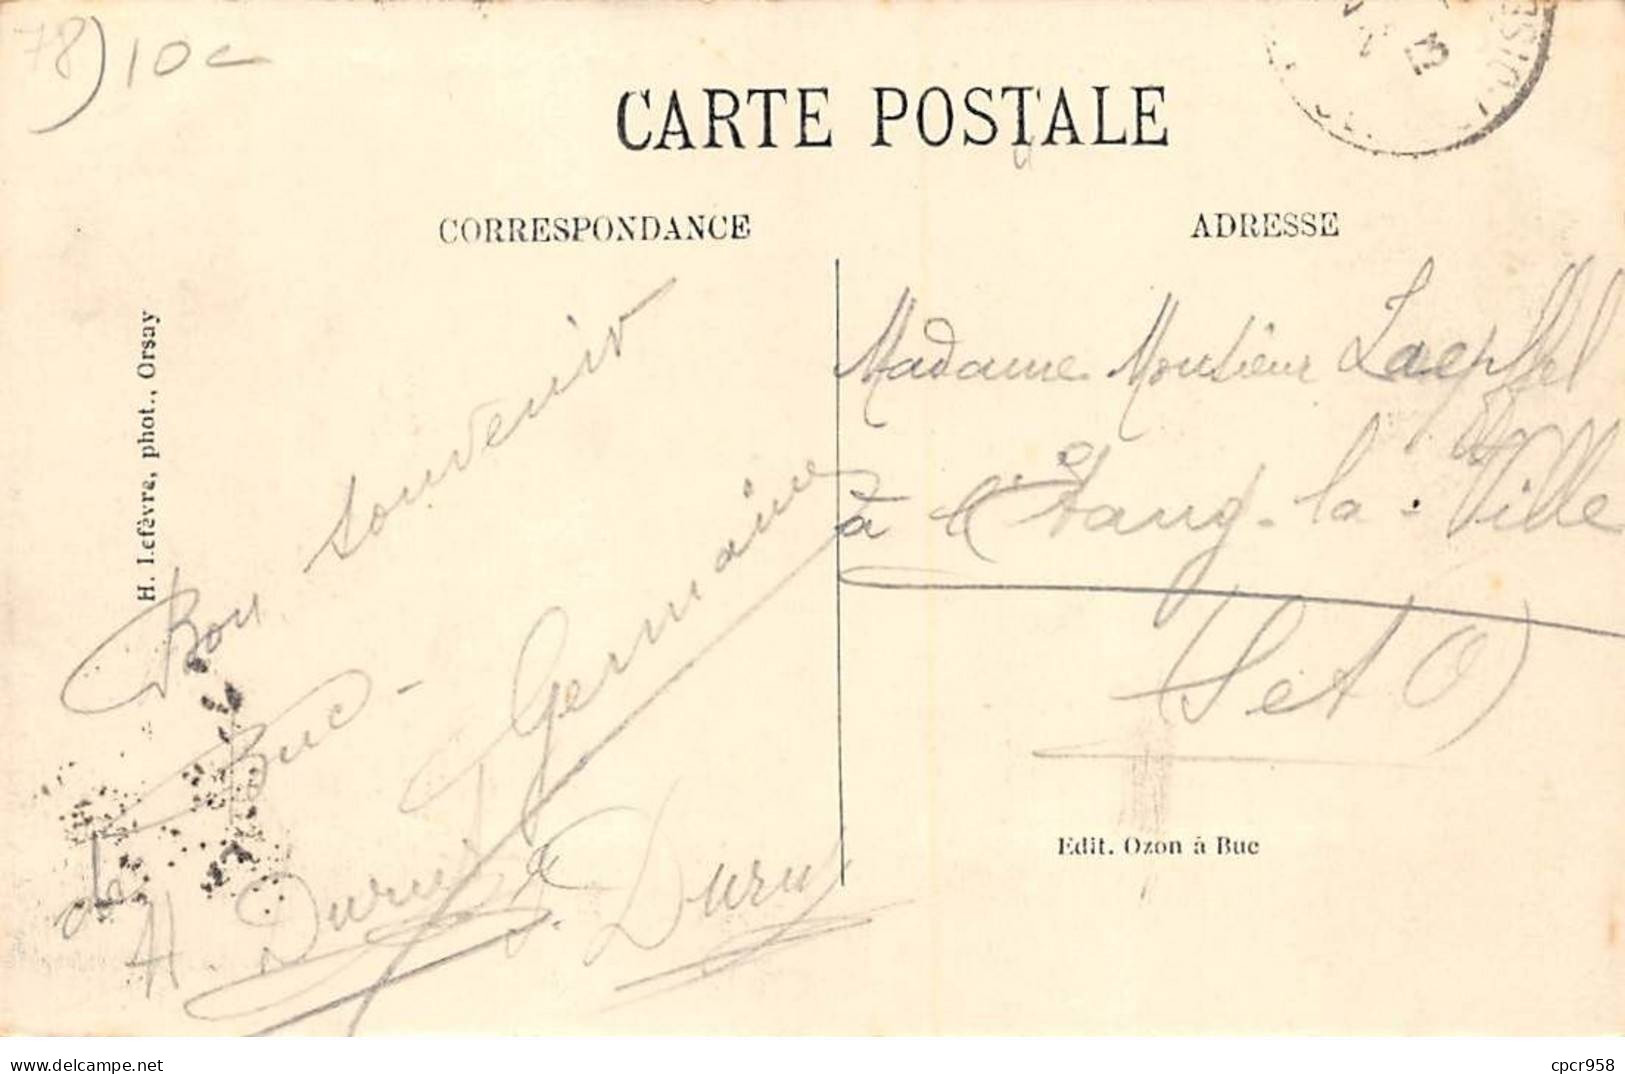 78) 10c
CARTE POSTALE
CORRESPONDANCE
ADRESSE
13
OISE
H. Lefèvre, phot., Orsay
Bon souvenir
de Buc -
Germaine
H. Duru & J. Duru
Madame Monsieur Zaepffel
à l'Étang-la-Ville
(S et O)
Edit. Ozon à Buc
delcampe.net
cpcr958